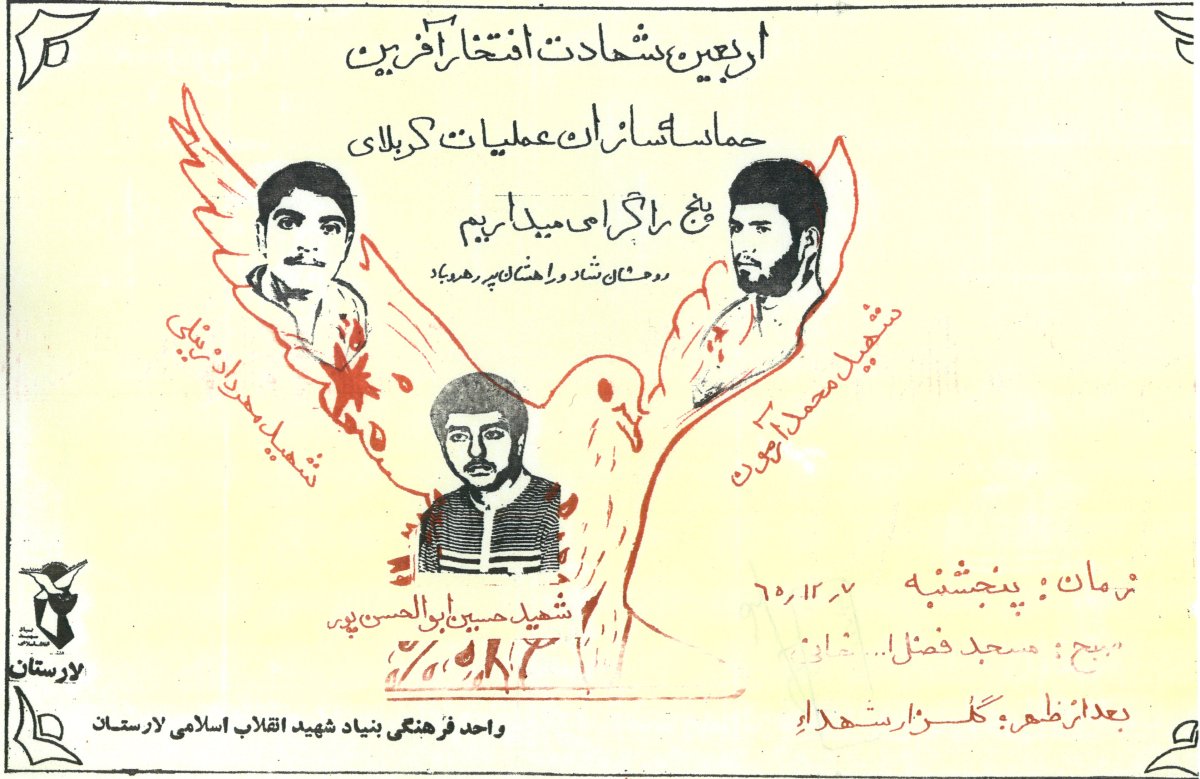 اربعین شهادت افتخار آفرین
حماسه سازان عملیات کربلای
پنج را گرامی میداریم
روحشان شاد و راهشان پر رهرو باد
شهید مهرداد زینلی
شهید محمد آزمون
شهید حسین ابوالحسن پور
زمان: پنجشنبه ۶۵٫۱۲٫۷
صبح: مسجد فضل ا...
بعد از ظهر: گلزار شهداء
بنیاد
لارستان
واحد فرهنگی بنیاد شهید انقلاب اسلامی لارستان